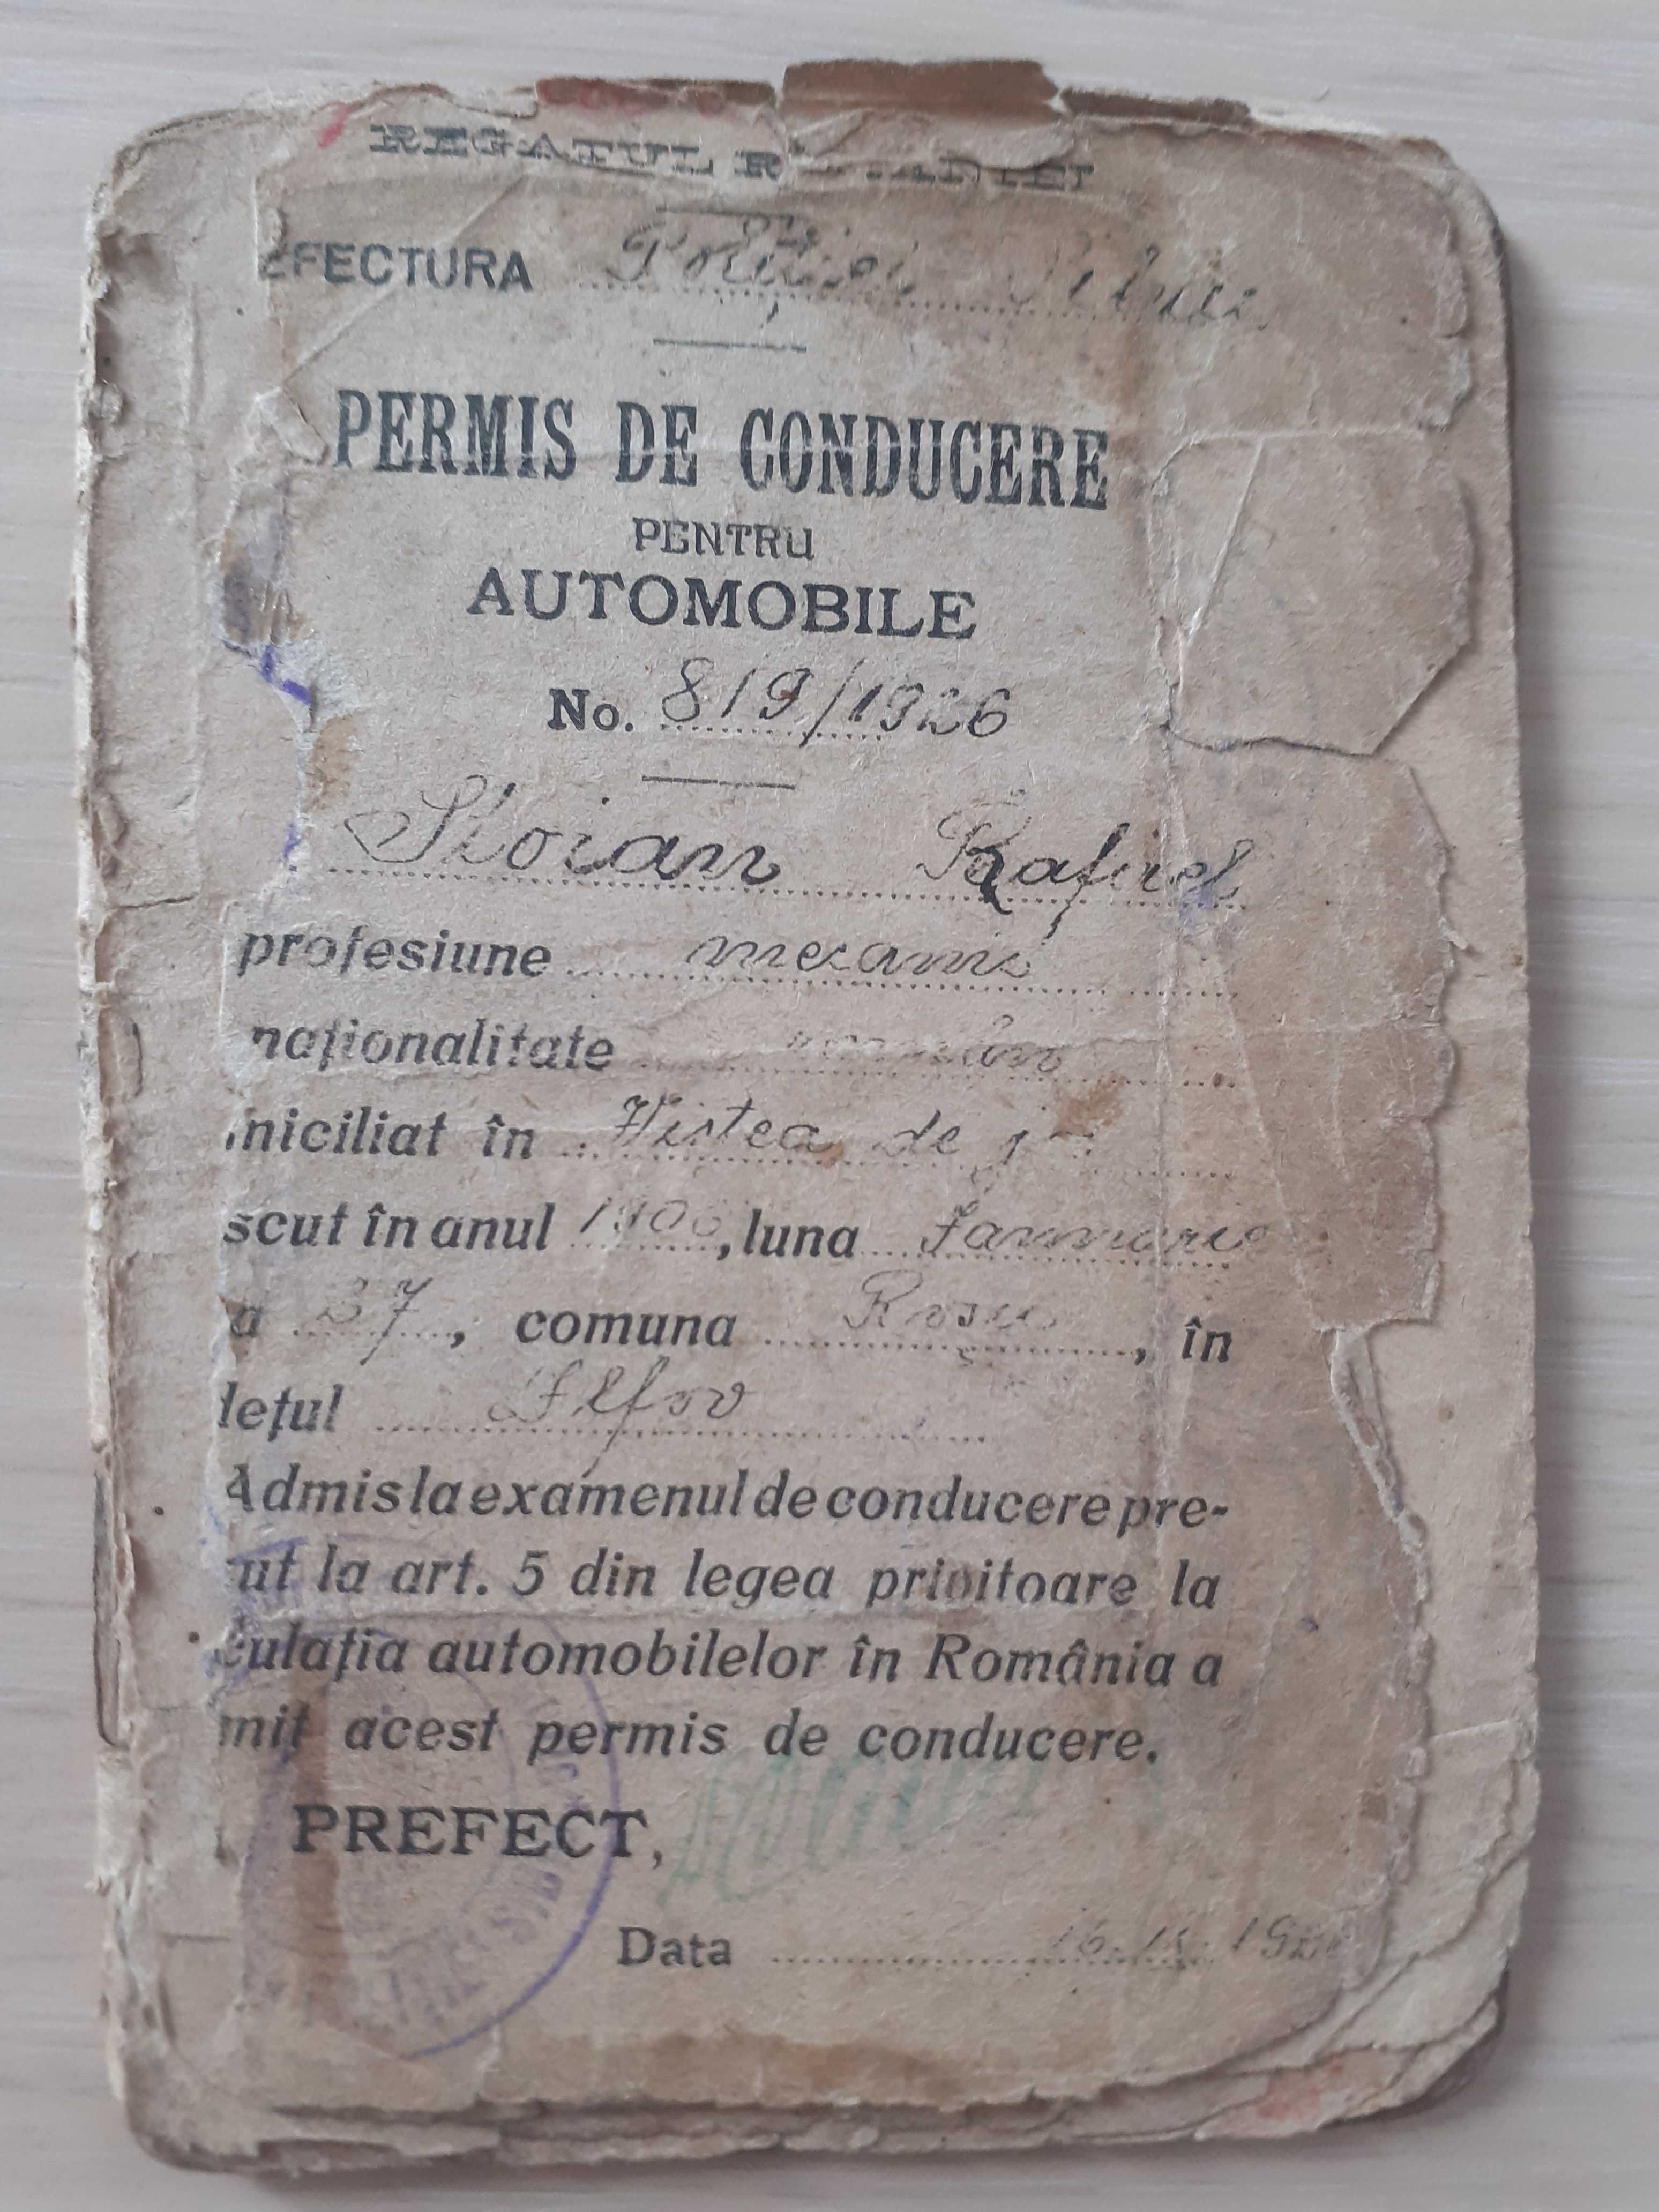 REGATUL R
EFECTURA Poliției
PERMIS DE CONDUCERE
PENTRU
AUTOMOBILE
No. 819/1926
Stoian Rafirel
profesiune mecanic
naționalitate român
miciliat în Vistea de jos
scut în anul 1906, luna Januarie
a 27, comuna Roșu, în
dețul Ilfov
Admis la examenul de conducere pre-
ut la art. 5 din legea privitoare la
culația automobilelor în România a
mit acest permis de conducere.
PREFECT,
Data